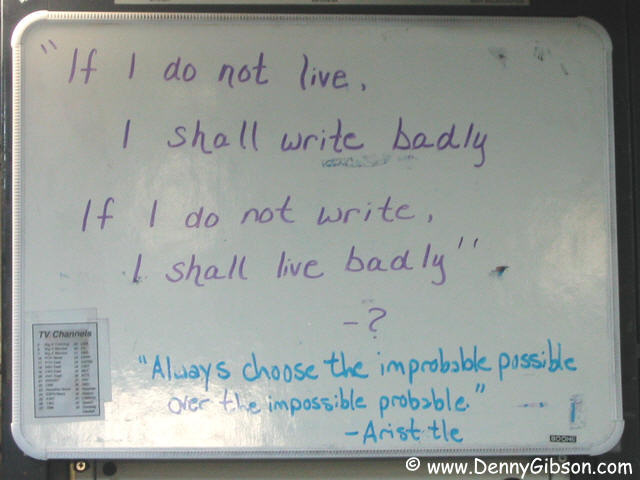 "If I do not live,
I shall write badly
If I do not write,
I shall live badly"
-?
TV Channels
"Always choose the improbable possible
over the impossible probable."
-Arist tle
BOONE
© www.DennyGibson.com